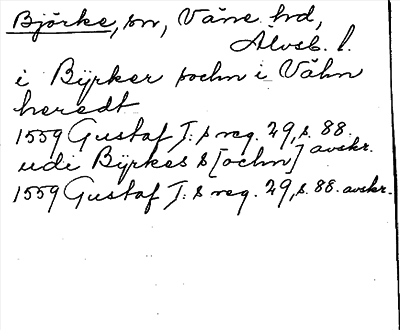 Björke, sn, Väne hd,
Älvsb. l.
i Byrker sochn i Vähn
heredt
1559 Gustaf I:s reg. 29, s. 88.
avskr.
udi Byrkes s[ochn]
1559 Gustaf I:s reg. 29, s. 88. avskr.